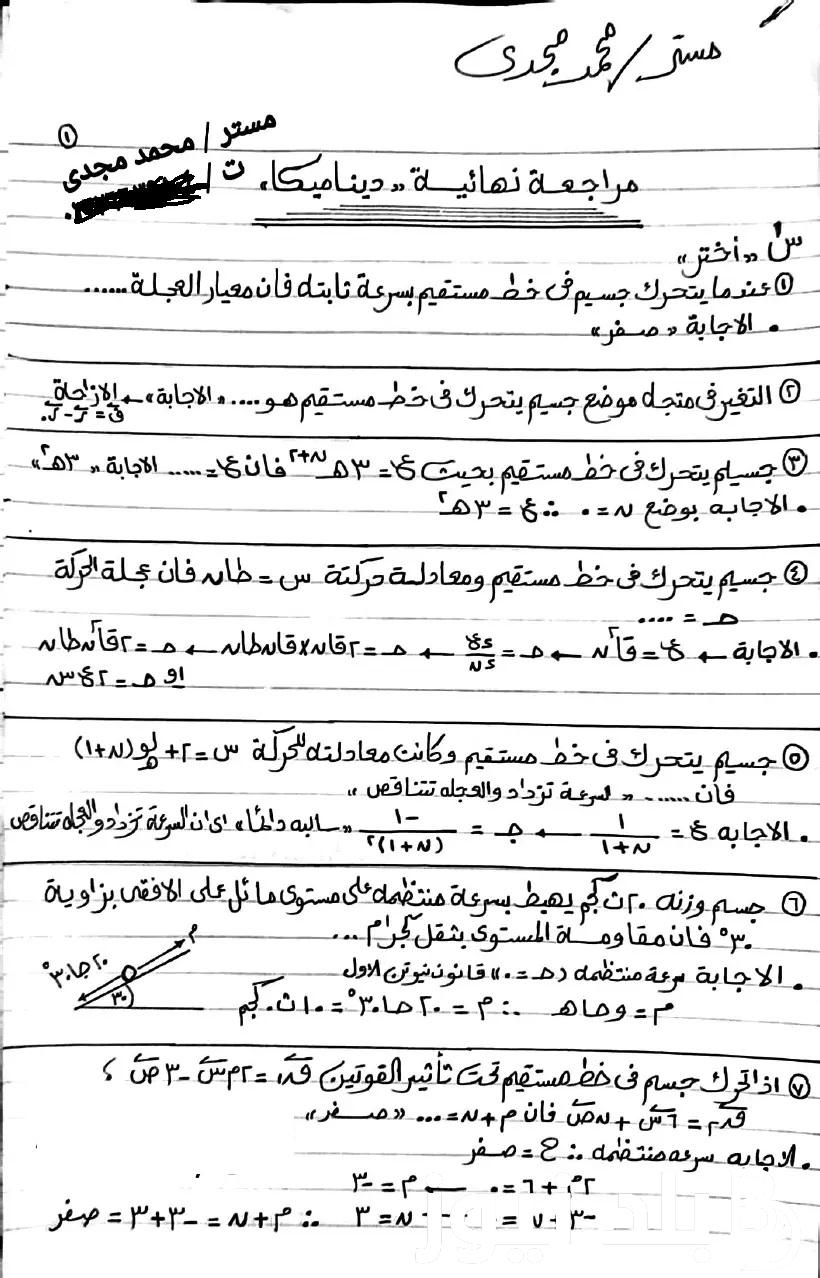 مستر/ محمد مجدى
①
مستر / محمد مجدى
ت /
مراجعة نهائية "ديناميكا"
س١ "أختر"
① عندما يتحرك جسيم فى خط مستقيم بسرعة ثابته فان معيار العجلة ......
• الاجابة "صفر"
② التغير فى متجه موضع جسيم يتحرك فى خط مستقيم هو .... "الاجابة" ← الازاحة
ف = ر - ر٠
③ جسيم يتحرك فى خط مستقيم بحيث ع = ٣هـ^(ن+٢) فان ع٠ = ..... الاجابة "٣هـ٢"
• الاجابه بوضع ن = ٠ ∴ ع٠ = ٣هـ٢
④ جسيم يتحرك فى خط مستقيم ومعادلة حركتة س = طان فان عجلة الحركة
حـ = ....
• الاجابة ← ع = قا٢ن ← حـ = دع/دن ← حـ = ٢قان×قان طان ← حـ = ٢قا٢ن طان
او حـ = ٢ع س
⑤ جسيم يتحرك فى خط مستقيم وكانت معادلته للحركة س = ٢ + لو(ن+١)
فان ...... "السرعة تزداد والعجله تتناقص"
• الاجابه ع = ١/(ن+١) ← جـ = -١/(ن+١)٢ "سالبه دائما" اى ان السرعة تزداد والعجله تتناقص
⑥ جسم وزنه ٢٠ ث كجم يهبط بسرعة منتظمه على مستوى مائل على الافقى بزاوية
٣٠° فان مقاومة المستوى بثقل كجرام ...
• الاجابة سرعة منتظمه (حـ = ٠) قانون نيوتن الاول
م = وحاهـ ∴ م = ٢٠ حا٣٠° = ١٠ ث.كجم
م
٢٠حا٣٠°
٣٠
⑦ اذا تحرك جسم فى خط مستقيم تحت تأثير القوتين ق١ = ٢م س - ٣ص ،
ق٢ = ٦س + ن ص فان م + ن = ... "صفر"
• الاجابه سرعه منتظمه ∴ ح = صفر
٢م + ٦ = ٠ ← م = -٣
-٣ + ن = ٠ ← ن = ٣ ∴ م + ن = -٣ + ٣ = صفر